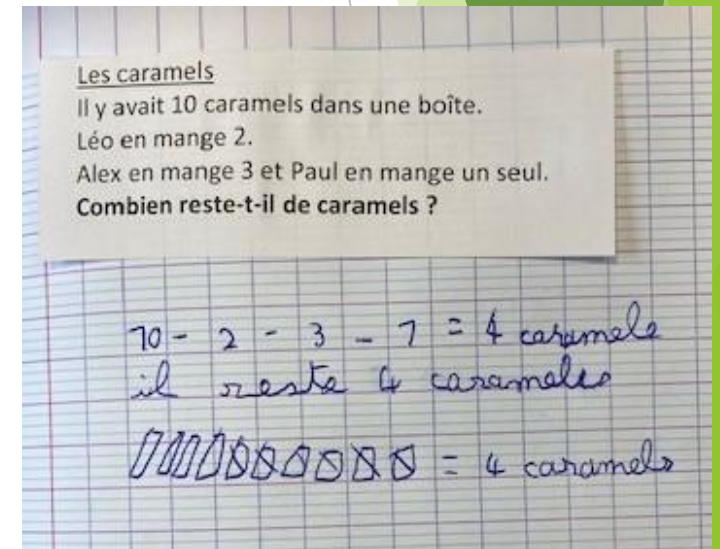 Les caramels
Il y avait 10 caramels dans une boîte.
Léo en mange 2.
Alex en mange 3 et Paul en mange un seul.
Combien reste-t-il de caramels ?
10 - 2 - 3 - 1 = 4 caramels
il reste 4 caramels
= 4 caramels